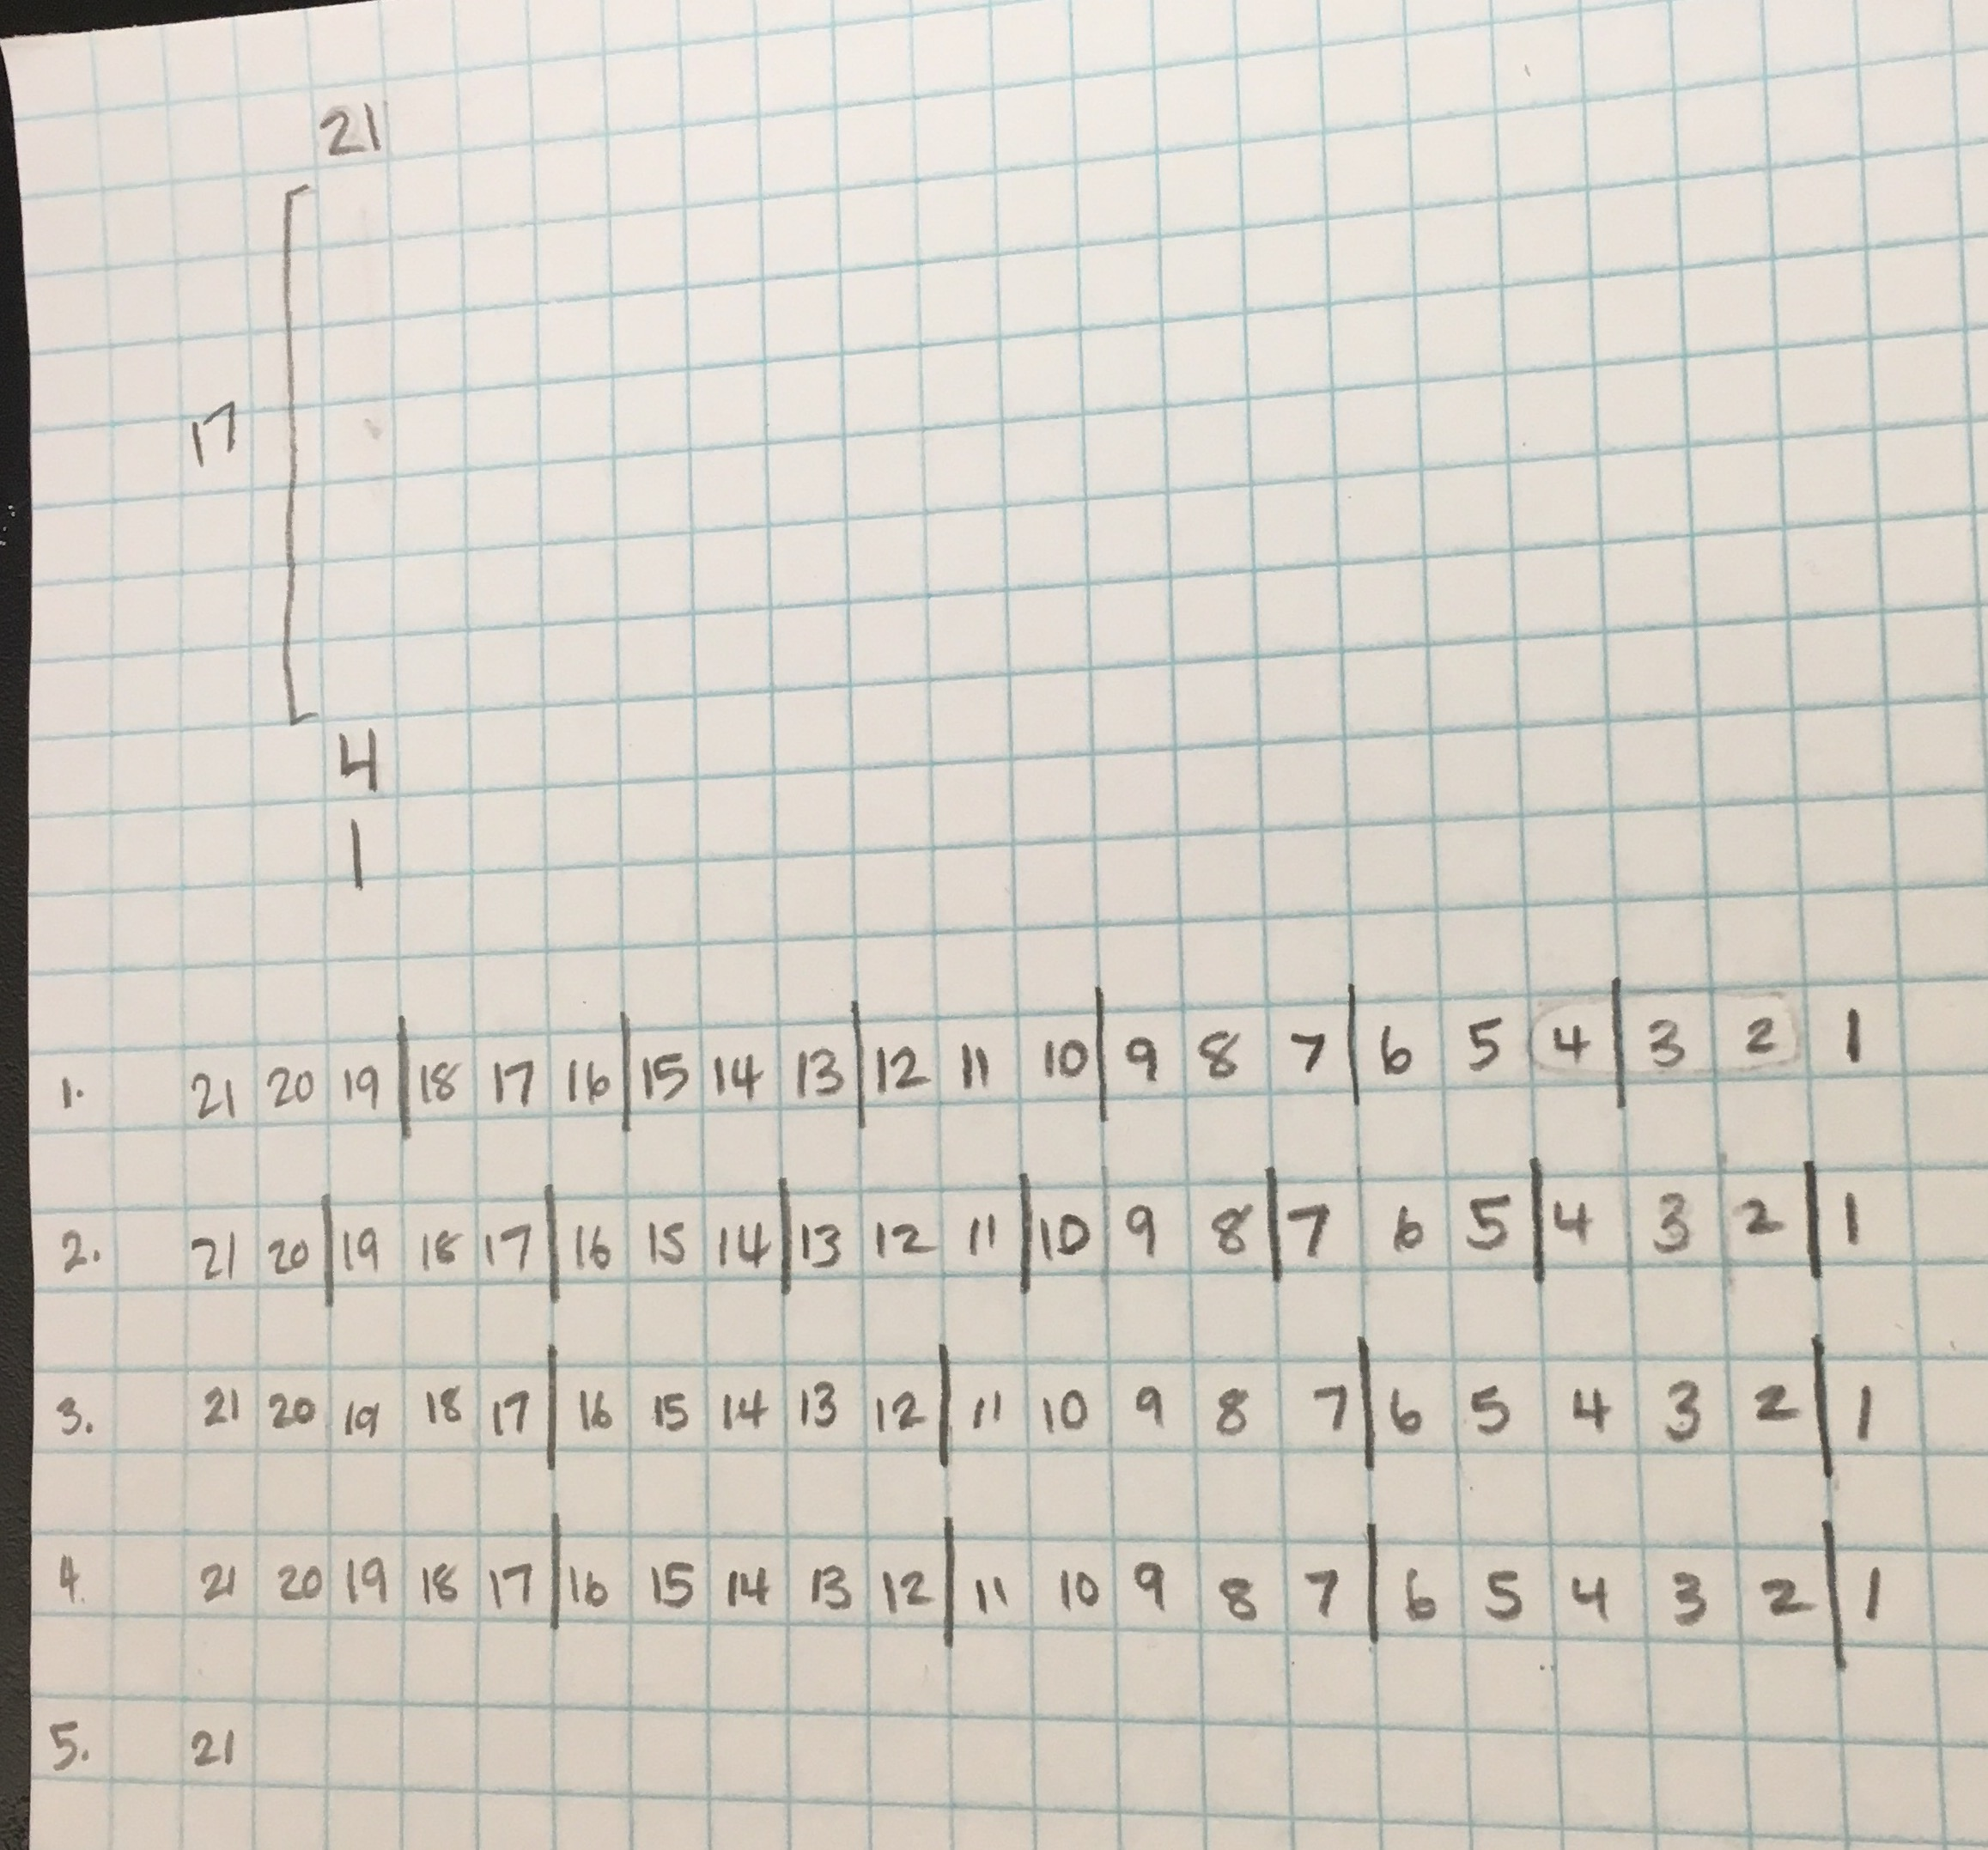 21
17
4
1
1. 21 20 19 | 18 17 16 | 15 14 13 | 12 11 10 | 9 8 7 | 6 5 4 | 3 2 1
2. 21 20 | 19 18 17 | 16 15 14 | 13 12 11 | 10 9 8 | 7 6 5 | 4 3 2 | 1
3. 21 20 19 18 17 | 16 15 14 13 12 | 11 10 9 8 7 | 6 5 4 3 2 | 1
4. 21 20 19 18 17 | 16 15 14 13 12 | 11 10 9 8 7 | 6 5 4 3 2 | 1
5. 21